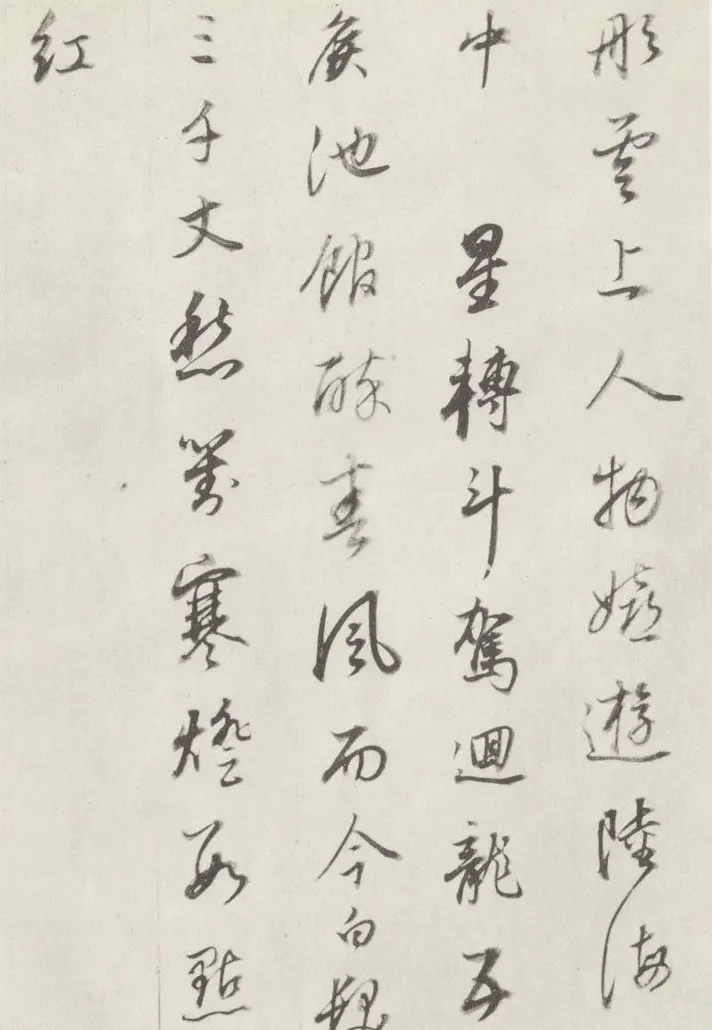 彤雲上人物嬉遊陸海
中　星轉斗駕迴龍五
侯池館醉春風而今白髮
三千丈愁對寒燈數點
紅